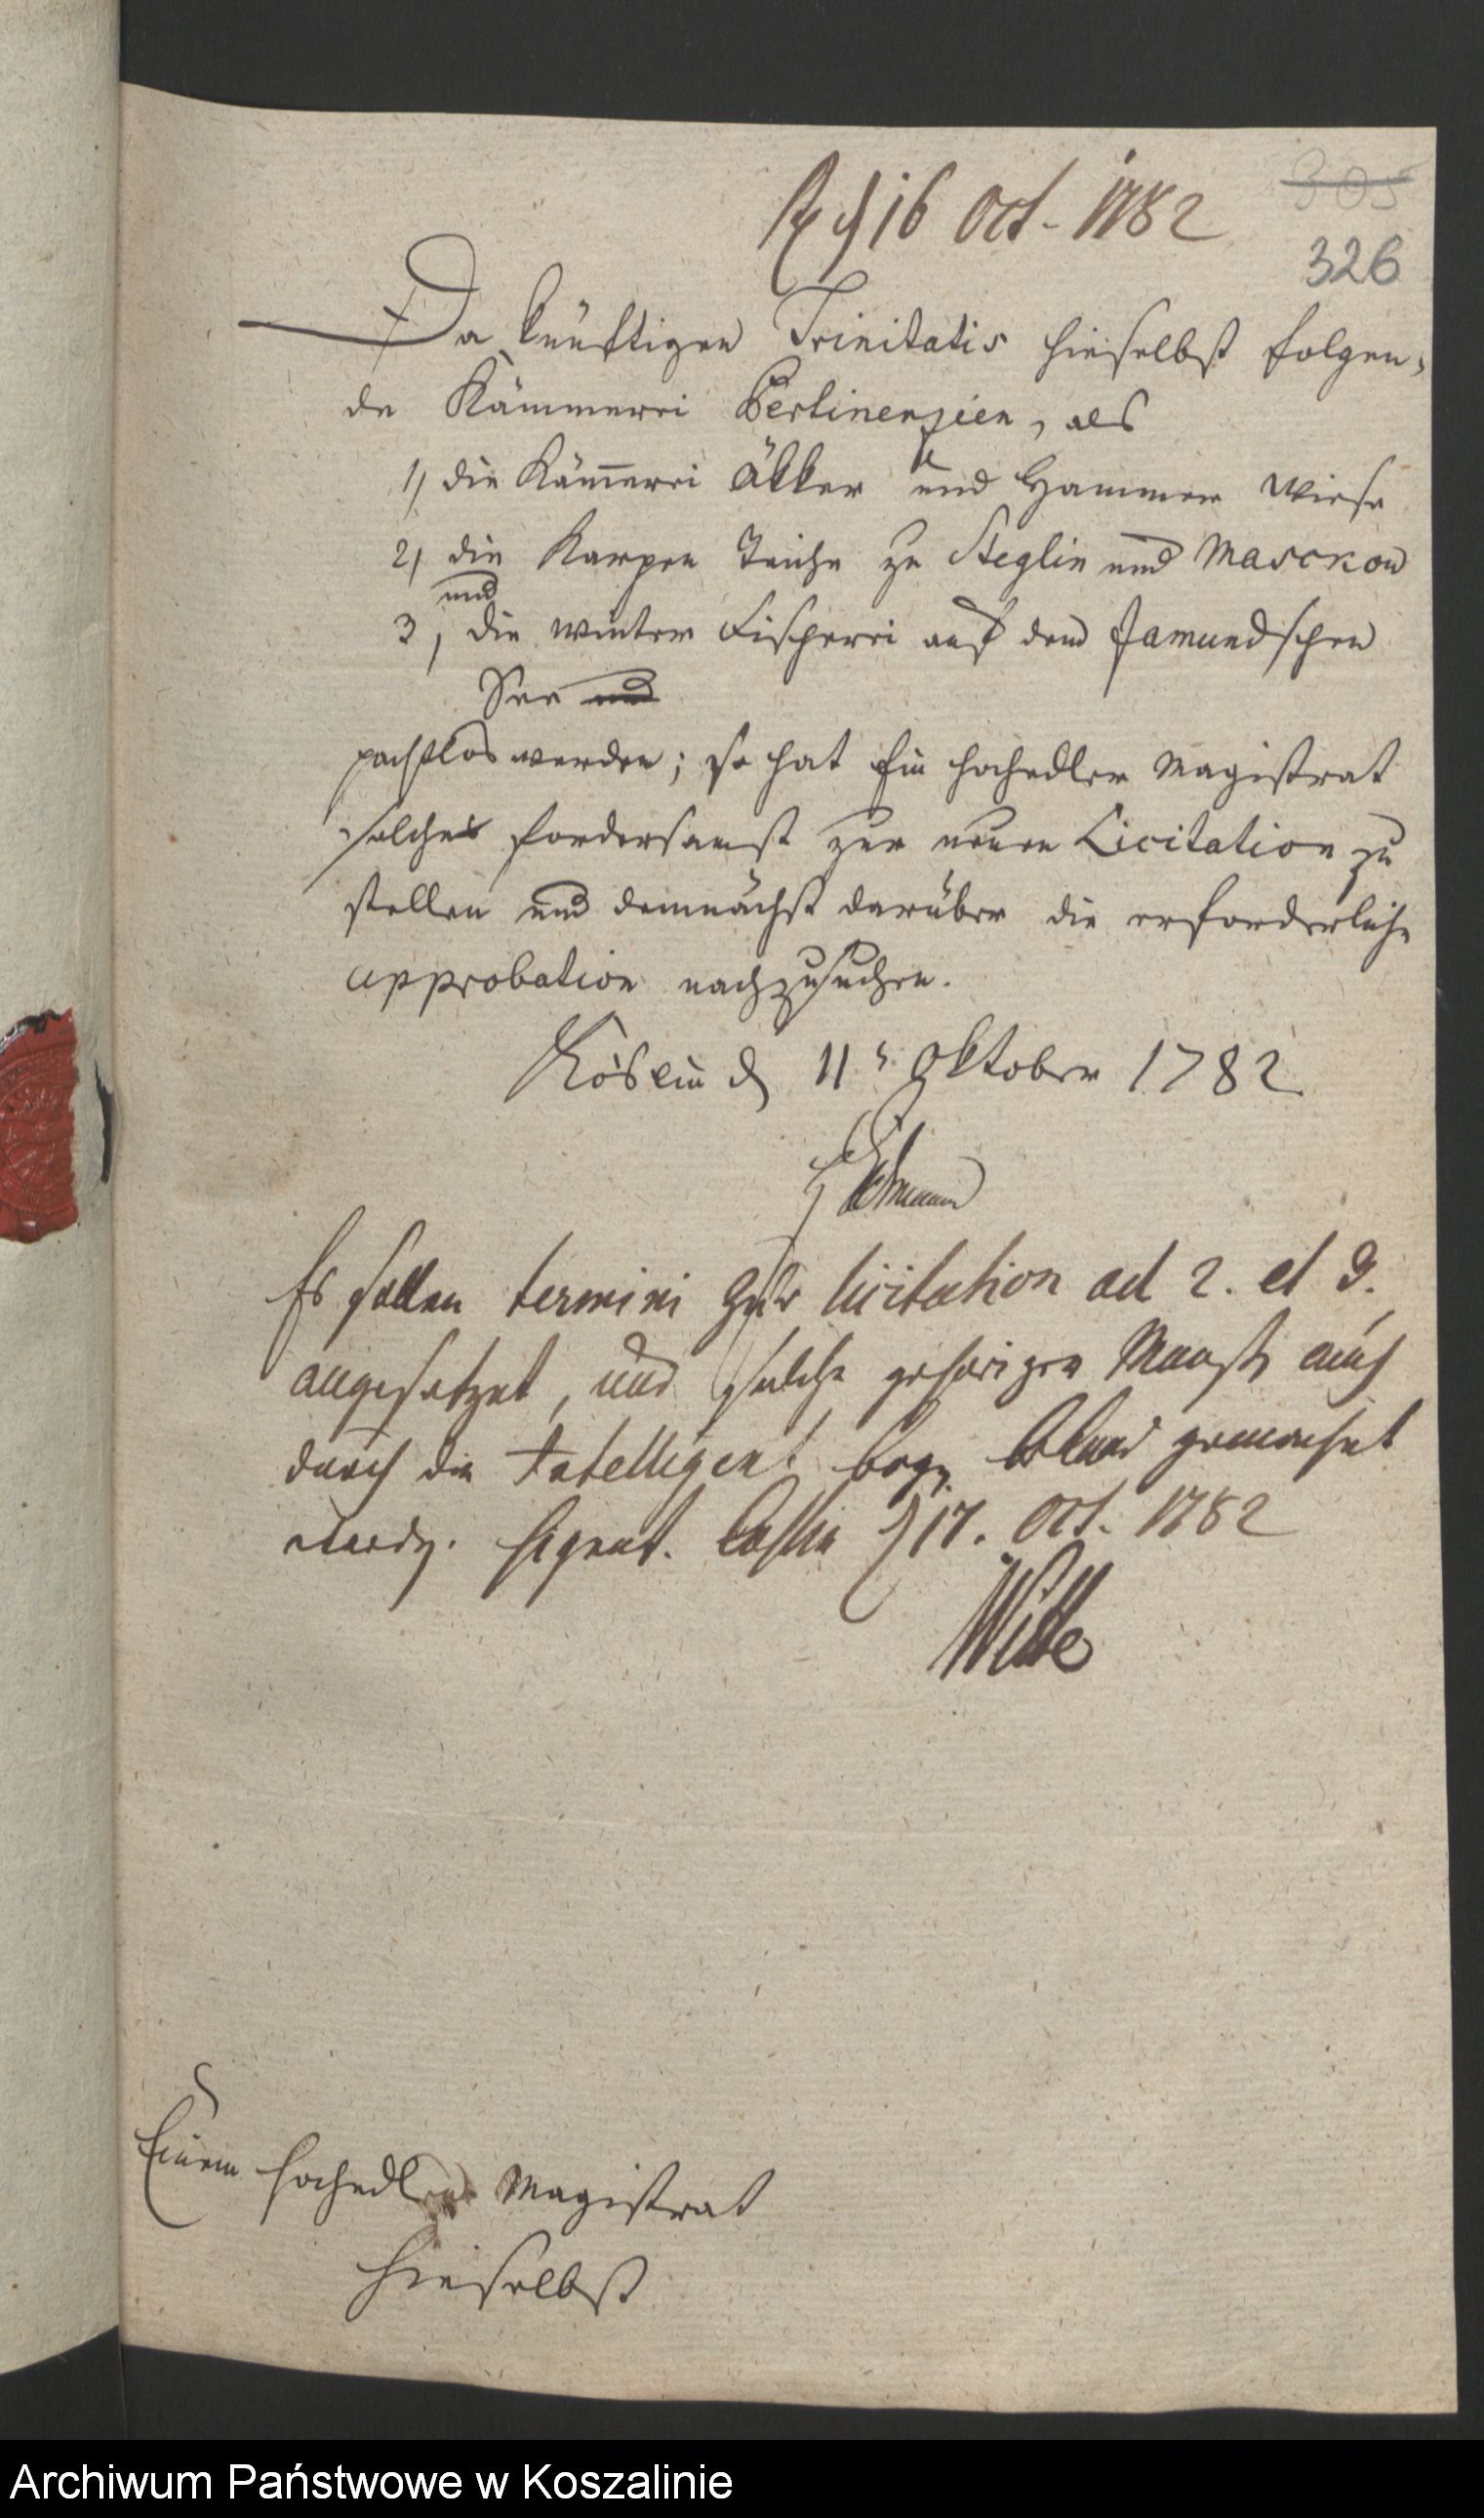 16 Oct. 1782
305
326
Da künftigen Trinitatis hieselbst folgen-
de Kämmerei Pertinenzien, als
1) die Kämerei Äkker und Hammer Wiese
2) die Karpen Teiche zu Steglin und Masckow
und
3, die Winter Fischerei auf dem Jamundschen
See und
pachtlos werden; so hat Ein Hochedler Magistrat
solches fordersamst zur neuen Licitation zu
stellen und demnächst darüber die erforderliche
approbation nachzusuchen.
Köslin d 11t Oktober 1782
Es sollen termini zur licitation ad 2. et 3.
angesetzet, und solche gehörigen auch
durch die Intelligenz bekand gemachet
werden. Signat. Coslin d 17. Oct. 1782
Witte
Einem Hochedlen Magistrat
hieselbst
Archiwum Państwowe w Koszalinie